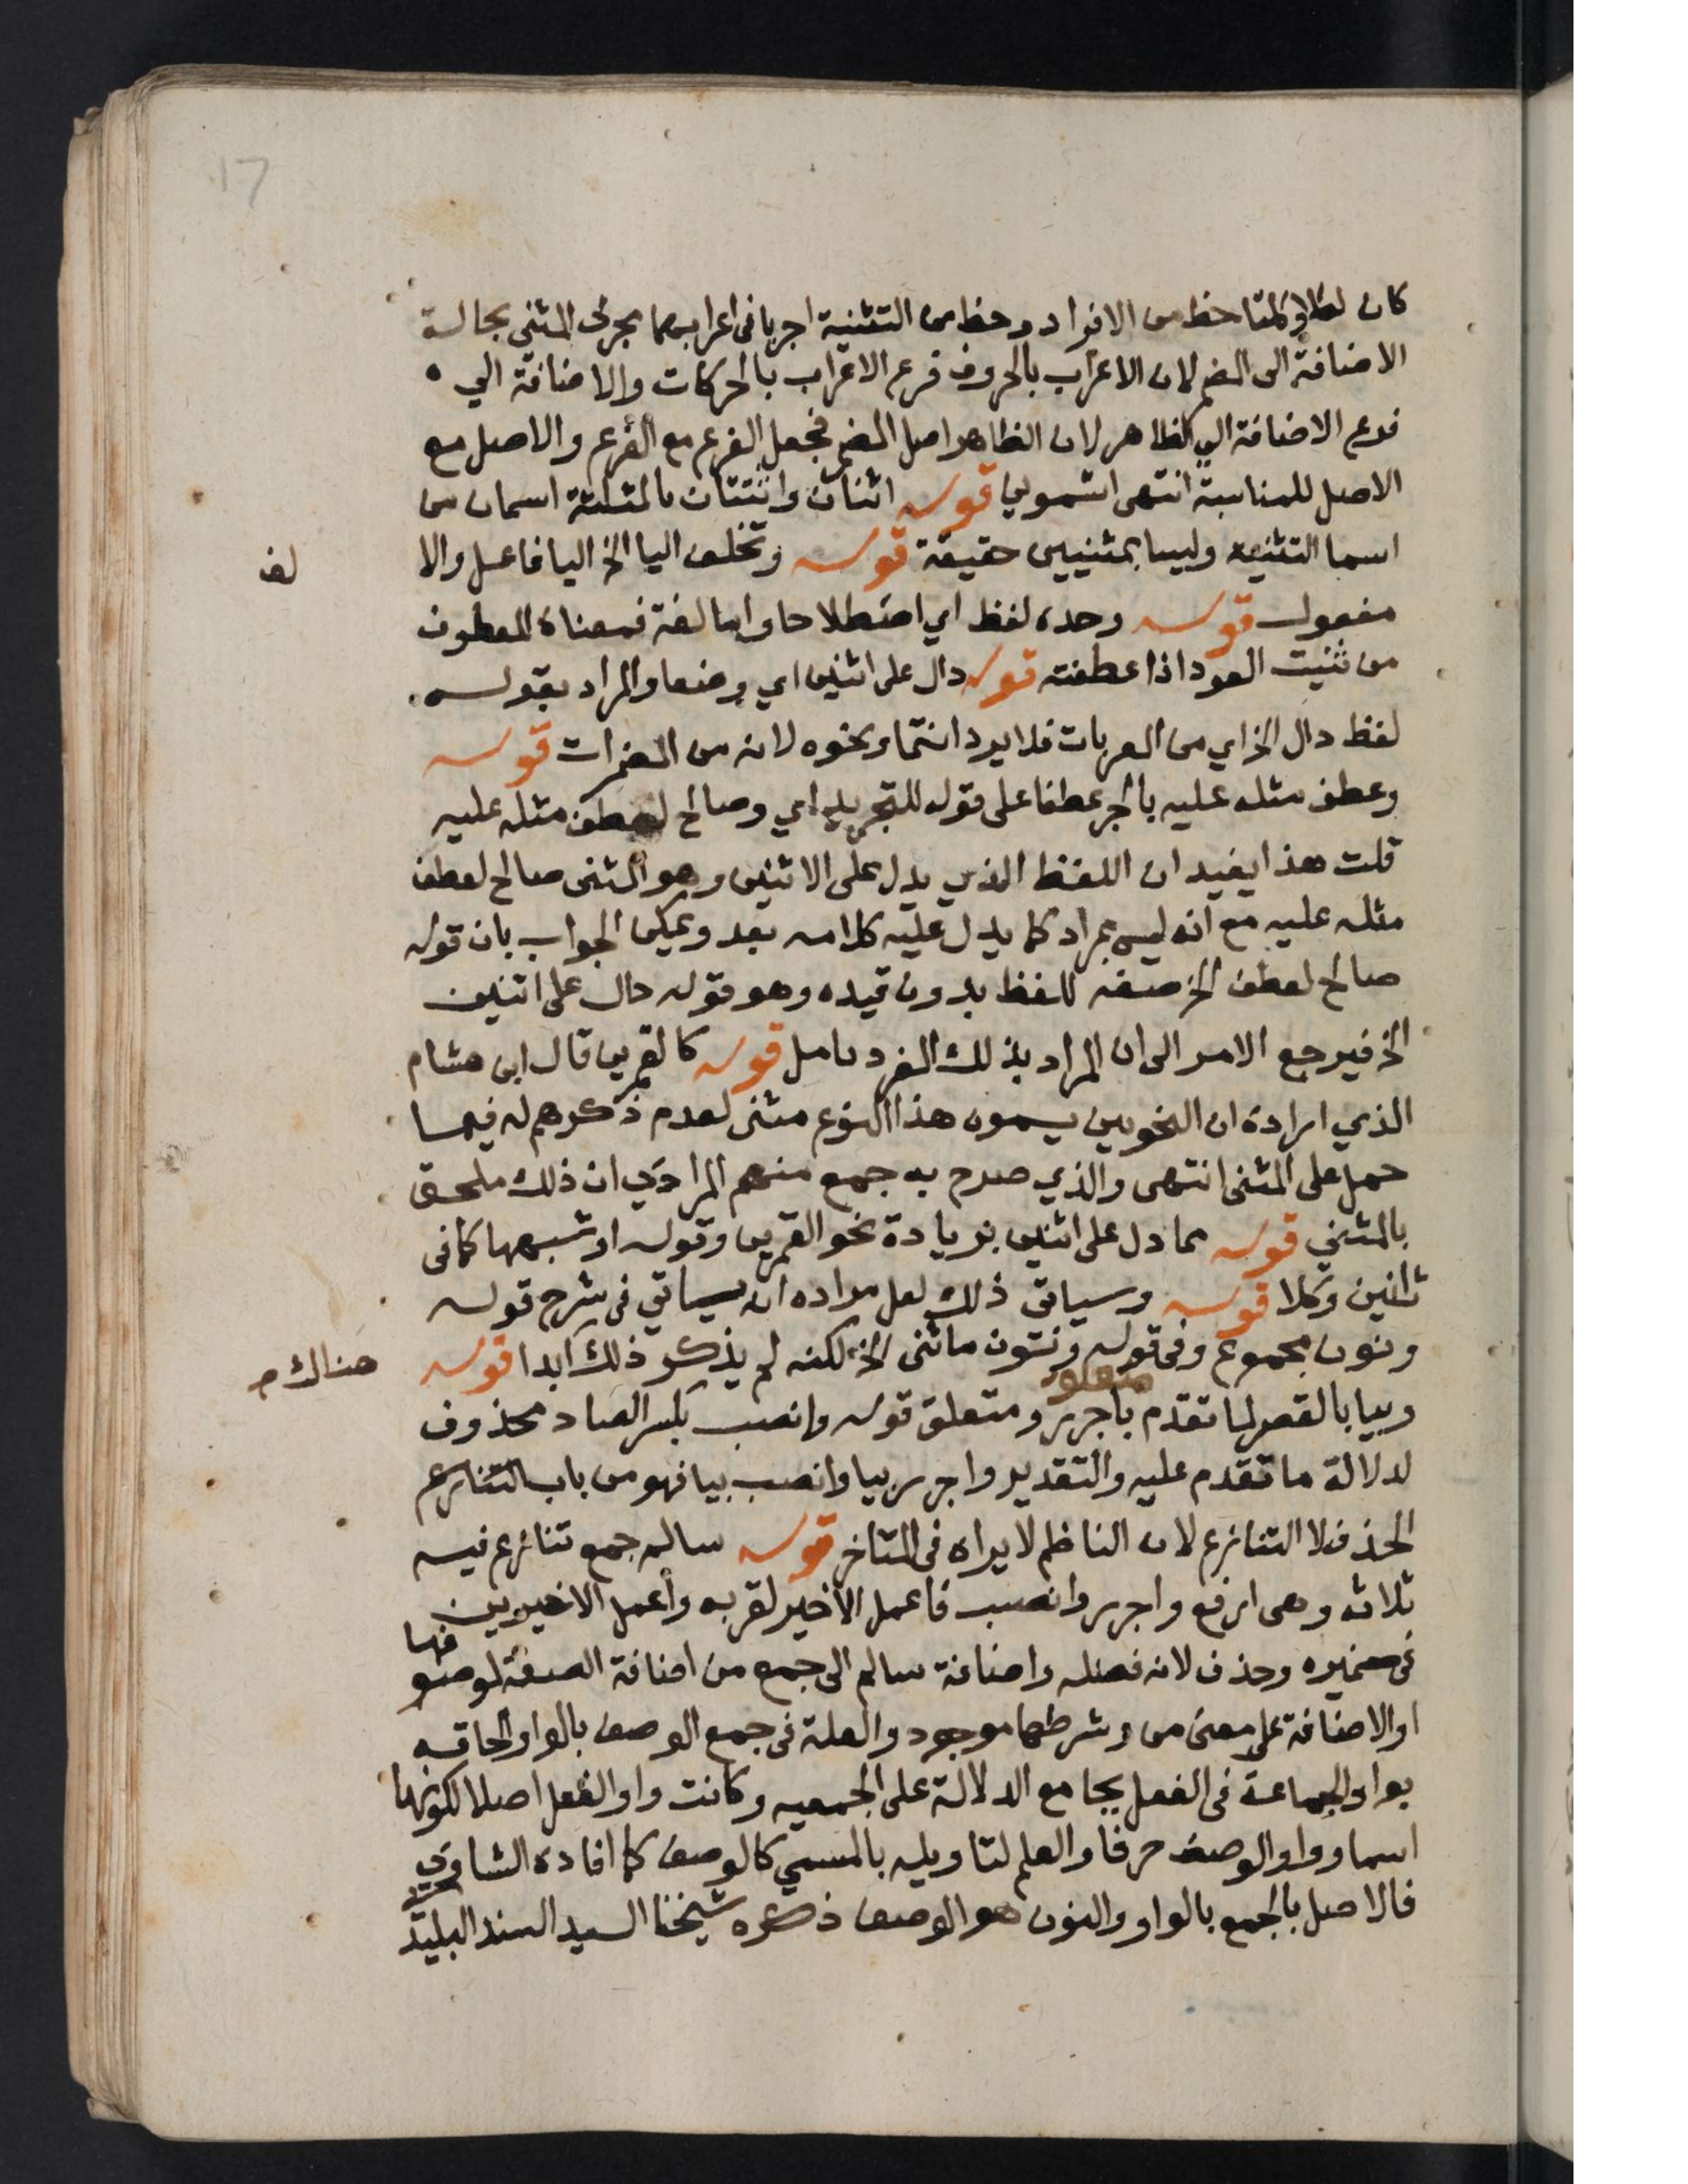 17
كان لكلا وكلتا حظ من الافراد وحظ من التثنية اجريا فى اعرابهما مجرى المثنى بحالة
الاضافة الى المضمر لان الاعراب بالحروف فرع الاعراب بالحركات والاضافة الي
فرع الاضافة الي الظاهر لان الظاهر اصل المضمر فجعل الفرع مع الفرع والاصل مع
الاصل للمناسبة انتهى اشموني قوله اثنان واثنتان بالمثلثة اسمان من
اسما التثنية وليسا بمثنيين حقيقة قوله وتخلف اليا الخ اليا فاعل والا
لف
مفعول قوله وحده لفظ اي اصطلاحا واما لغة فمعناه المعطوف
من ثنيت العود اذا عطفته قوله دال على اثنين اي وضعا والمراد بقوله
لفظ دال الخ اي من المعربات فلا يرد انتما ونحوه لانه من المضمرات قوله
وعطف مثله عليه بالجر عطفا على قوله للتجريد اي وصالح لعطف مثله عليه
قلت هذا يفيد ان اللفظ الذي يدل على الاثنين وهو المثنى صالح لعطف
مثله عليه مع انه ليس بمراد كما يدل عليه كلامه بعد ويمكن الجواب بان قوله
صالح لعطف الخ صفة للفظ بدون قيده وهو قوله دال على اثنين
الخ فيرجع الامر الى ان المراد بذلك المفرد تامل قوله كالقمرين قال ابن هشام
الذي اراده ان النحويين يسمون هذا النوع مثنى لعدم ذكرهم له فيما
حمل على المثنى انتهى والذي صرح به جمع منهم المرادي ان ذلك ملحق
بالمثني قوله مما دل على اثنين بزيادة نحو القمرين وقوله او شبهها كما فى
اثنين وكلا قوله وسياتي ذلك لعل مراده انه سياتي فى شرح قوله
ونون مجموع وفى قوله ونون ما ثنى الخ لكنه لم يذكر ذلك ابدا قوله
هناك م
متعلق
وبيا بالقصر لما تقدم باجرر ومتعلق قوله وانصب بكسر الصاد محذوف
لدلالة ما تقدم عليه والتقدير واجرر بيا وانصب بيا فهو من باب التنازع
الحذف لا التنازع لان الناظم لا يراه فى المتاخر قوله سالم جمع تنازع فيه
ثلاثة وهى ارفع واجرر وانصب فاعمل الاخير لقربه واعمل الاخيرين
فى ضميره وحذف لانه فضله واضافة سالم الى جمع من اضافة الصفة لموصوفها
او الاضافة على معنى من وشرطها موجود والعلة فى جمع الوصف بالواو الحاقه
بواو الجماعة فى الفعل بجامع الدلالة على الجمعيه وكانت واو الفعل اصلا لكونها
اسما وواو الوصف حرفا والعلم لتاويله بالمسمي كالوصف كما افاده الشاوي
فالاصل بالجمع بالواو والنون هو الوصف ذكره شيخنا السيد السند البليدي